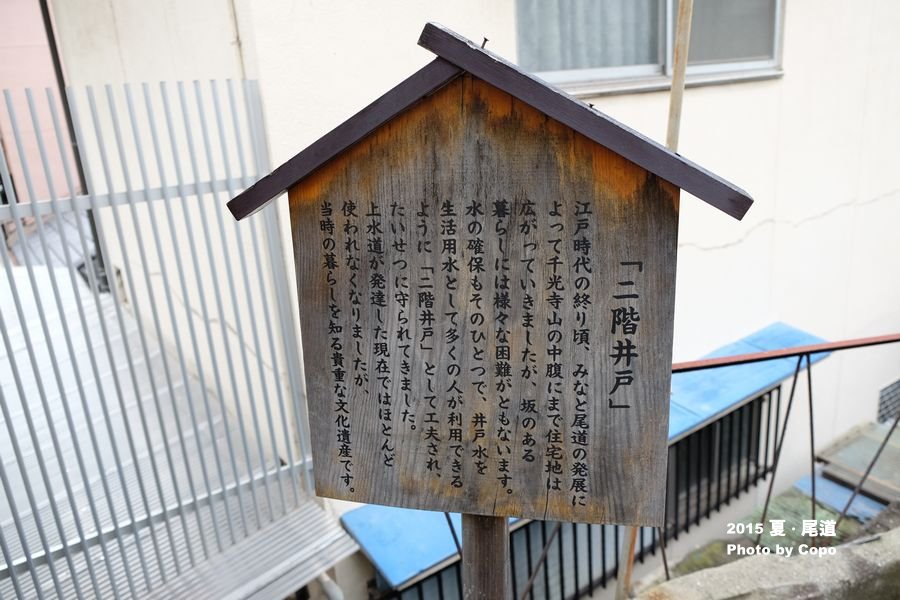 「二階井戸」
江戸時代の終り頃、みなと尾道の発展に
よって千光寺山の中腹にまで住宅地は
広がっていきましたが、坂のある
暮らしには様々な困難がともないます。
水の確保もそのひとつで、井戸水を
生活用水として多くの人が利用できる
ように「二階井戸」として工夫され、
たいせつに守られてきました。
上水道が発達した現在ではほとんど
使われなくなりましたが、
当時の暮らしを知る貴重な文化遺産です。
2015 夏·尾道
Photo by Copo